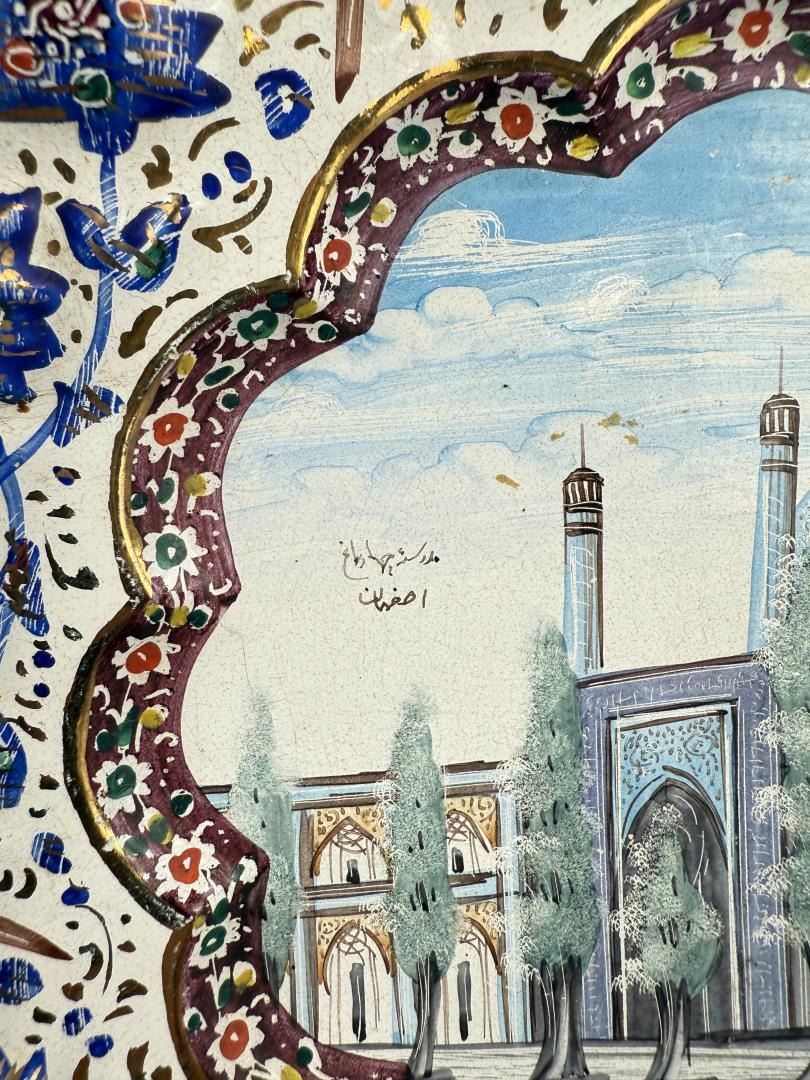 مدرسه چهارباغ
اصفهان